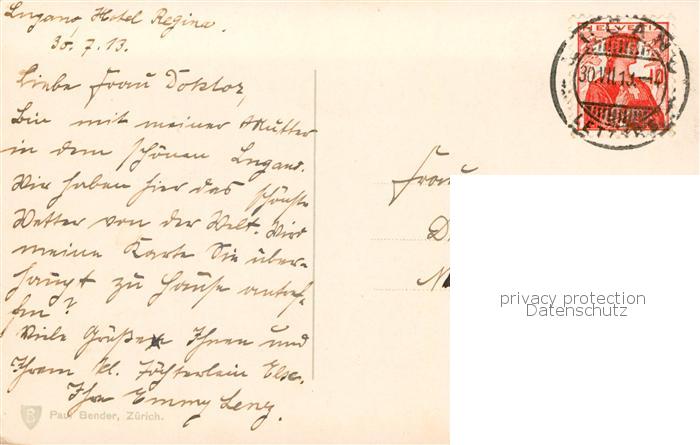 Lugano, Hotel Regina.
30.7.13.
Liebe Frau Doktor,
Bin mit meiner Mutter
in dem schönen Lugano.
Wir haben hier das schönste
Wetter von der Welt. Wird
meine Karte Sie über-
haupt zu Hause antref-
fen?
Viele Grüße Ihnen und
Ihrem kl. Töchterlein Else.
Ihre Emmy Lenz.
Paul Bender, Zürich.
HELVETIA
LUGANO
30.VII.13.
LETTERE
Frau
D
N
privacy protection
Datenschutz